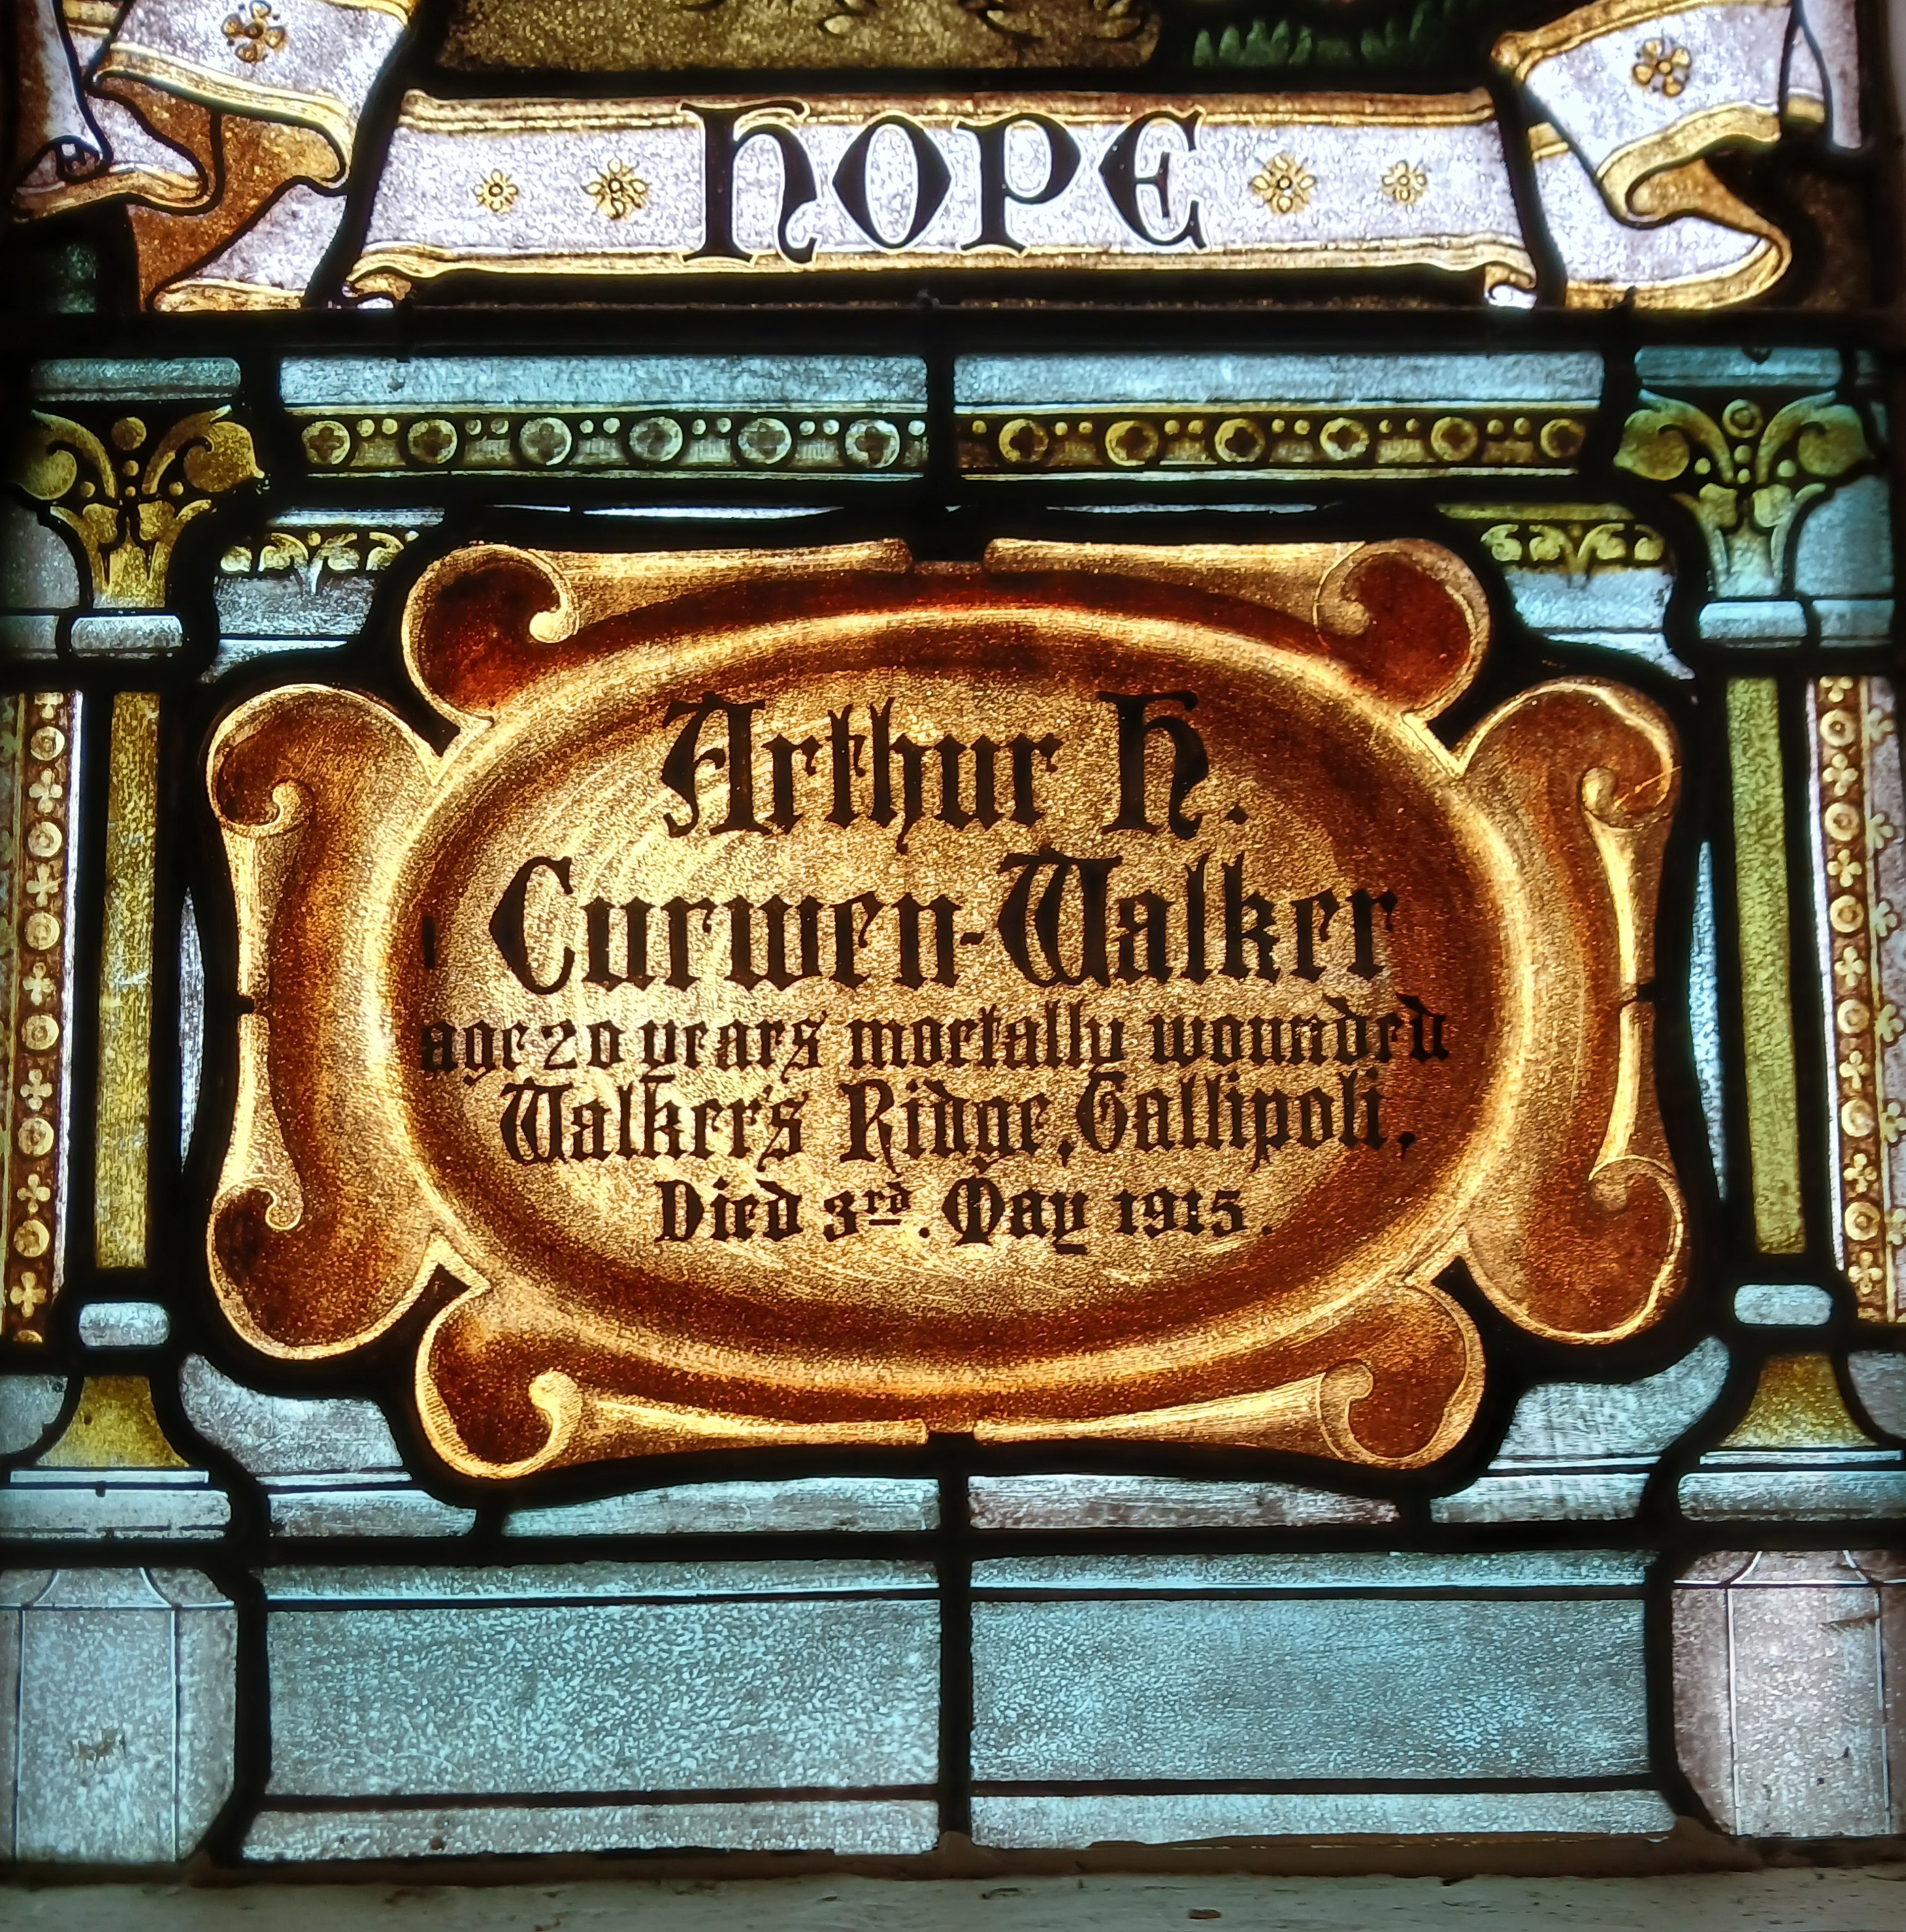 HOPE
Arthur H.
Curwen-Walker
age 20 years mortally wounded
Walker's Ridge, Gallipoli,
Died 3rd. May 1915.